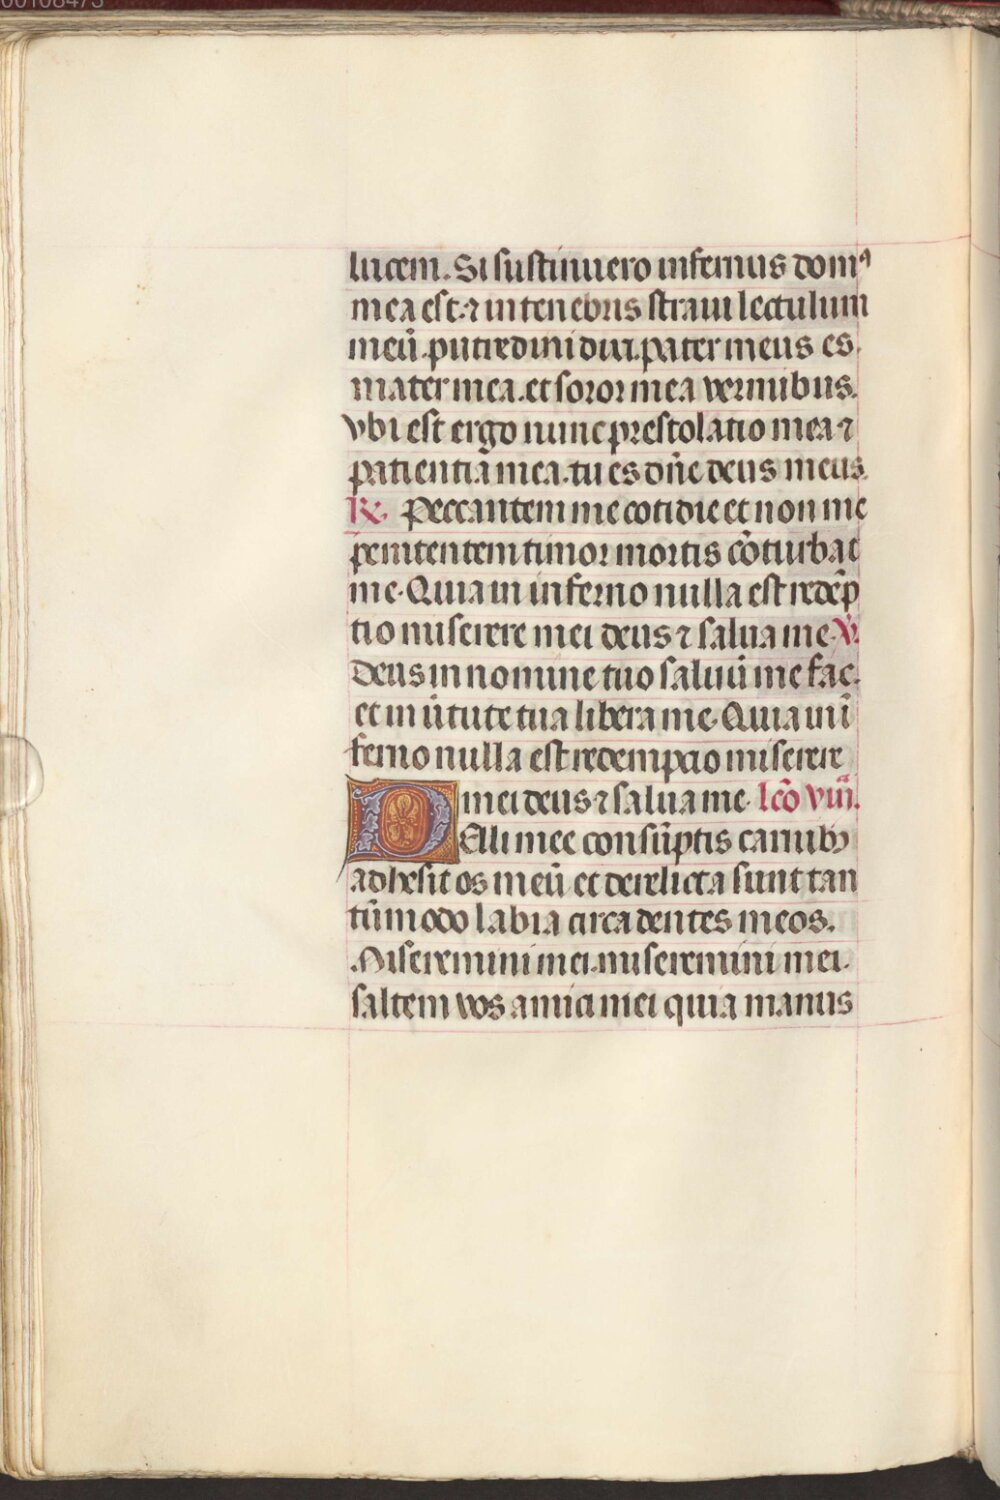 lucem. Si sustinuero infernus domꝰ
mea est. ⁊ in tenebris straui lectulum
meū. putredini dixi. pater meus es.
mater mea. et soror mea vermibus.
vbi est ergo nunc prestolatio mea ⁊
patientia mea. tu es dn̄e deus meus.
℟. Peccantem me cotidie et non me
penitentem timor mortis cōturbat
me. Quia in inferno nulla est redēp
tio miserere mei deus ⁊ salua me. ℣.
Deus in nomine tuo saluū me fac.
et in ūtute tua libera me. Quia in ī
ferno nulla est redempcio miserere
mei deus ⁊ salua me. lcō viii.ª
Pelli mee consūptis carnibꝫ
adhesit os meū et derelicta sunt tan
tūmodo labia circa dentes meos.
Miseremini mei. miseremini mei.
saltem vos amici mei quia manus